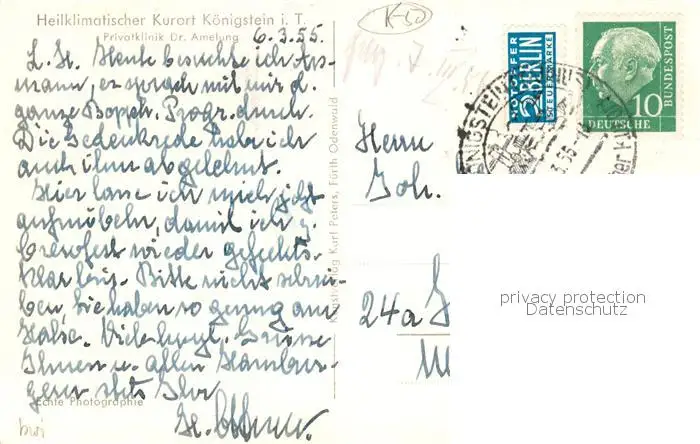 Heilklimatischer Kurort Königstein i. T.
Privatklinik Dr. Amelung
6.3.55.
L. H. Heute besuchte ich Ass-
mann, er sprach mit mir d.
ganze Bopph. Progr. durch.
Die Gedenkrede habe ich
auch ihm abgelehnt.
Hier lasse ich mich jetzt
aufmöbeln, damit ich z.
wieder gefechts-
klar bin. Bitte nicht schrei-
ben, Sie haben so genug am
Halse. Grüsse
Ihnen u. allen Hambur-
gern stets Ihr
Echte Photographie
Kunstverlag Kurt Peters, Fürth Odenwald
K-20
NOTOPFER
2 BERLIN
STEUERMARKE
10
DEUTSCHE
BUNDESPOST
KÖNIGSTEIN
Herrn
Joh.
24a
privacy protection
Datenschutz